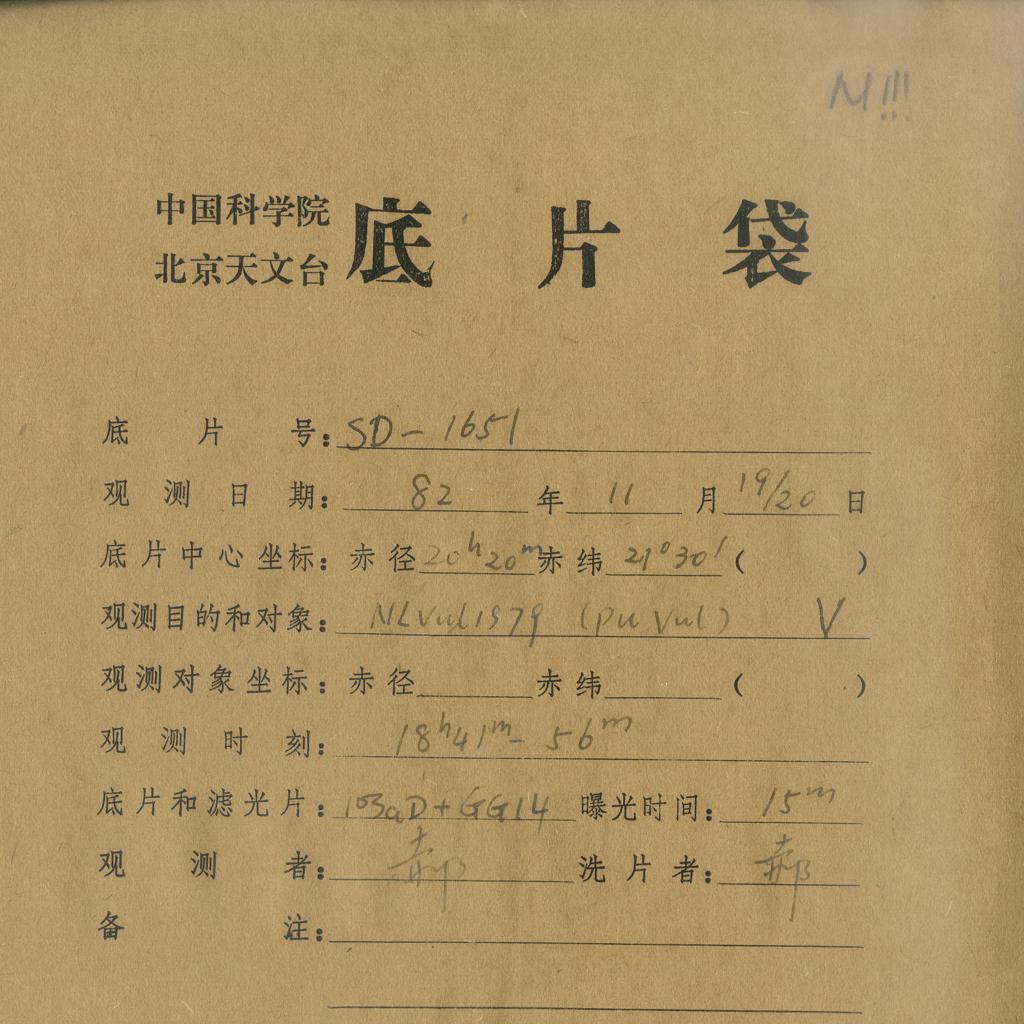 N!!!
中国科学院
北京天文台
底片袋
底片号：SD-1651
观测日期：82年11月19/20日
底片中心坐标：赤径20h20m赤纬21°30′（ ）
观测目的和对象：NLVul1979 (PU Vul) V
观测对象坐标：赤径 赤纬 （ ）
观测时刻：18h41m-56m
底片和滤光片：103aD+GG14 曝光时间：15m
观测者：郝 洗片者：郝
备注：